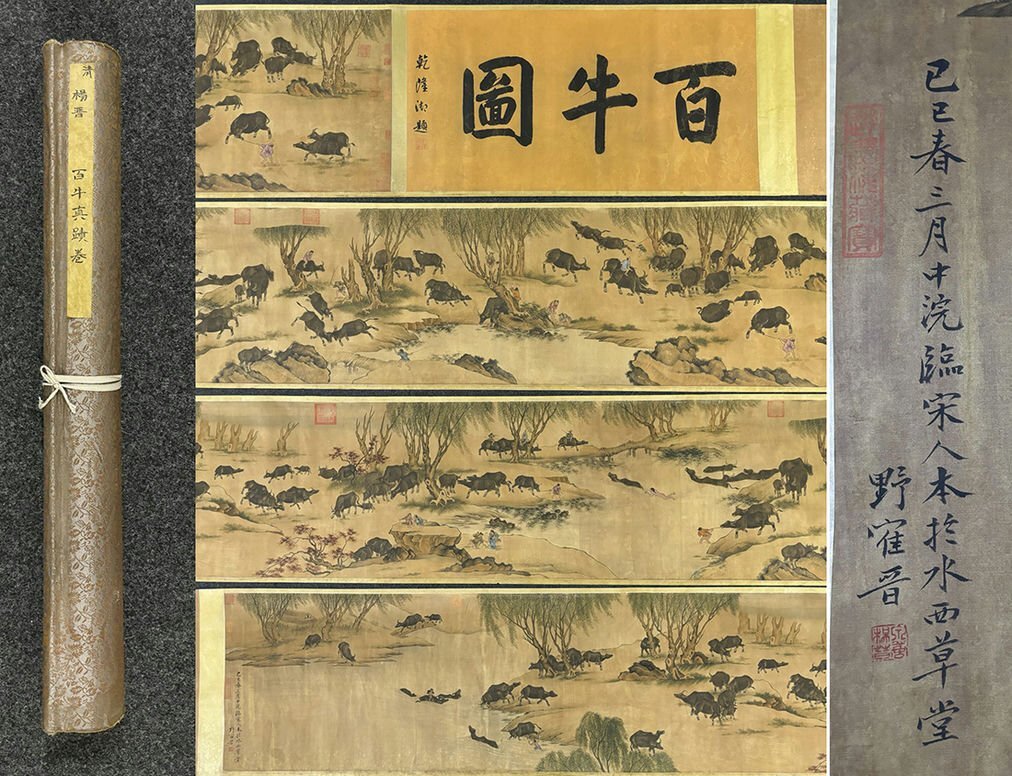 清 楊晋 百牛真蹟卷
百牛圖
乾隆御題
己巳春三月中浣臨宋人本於水西草堂
野寉晋